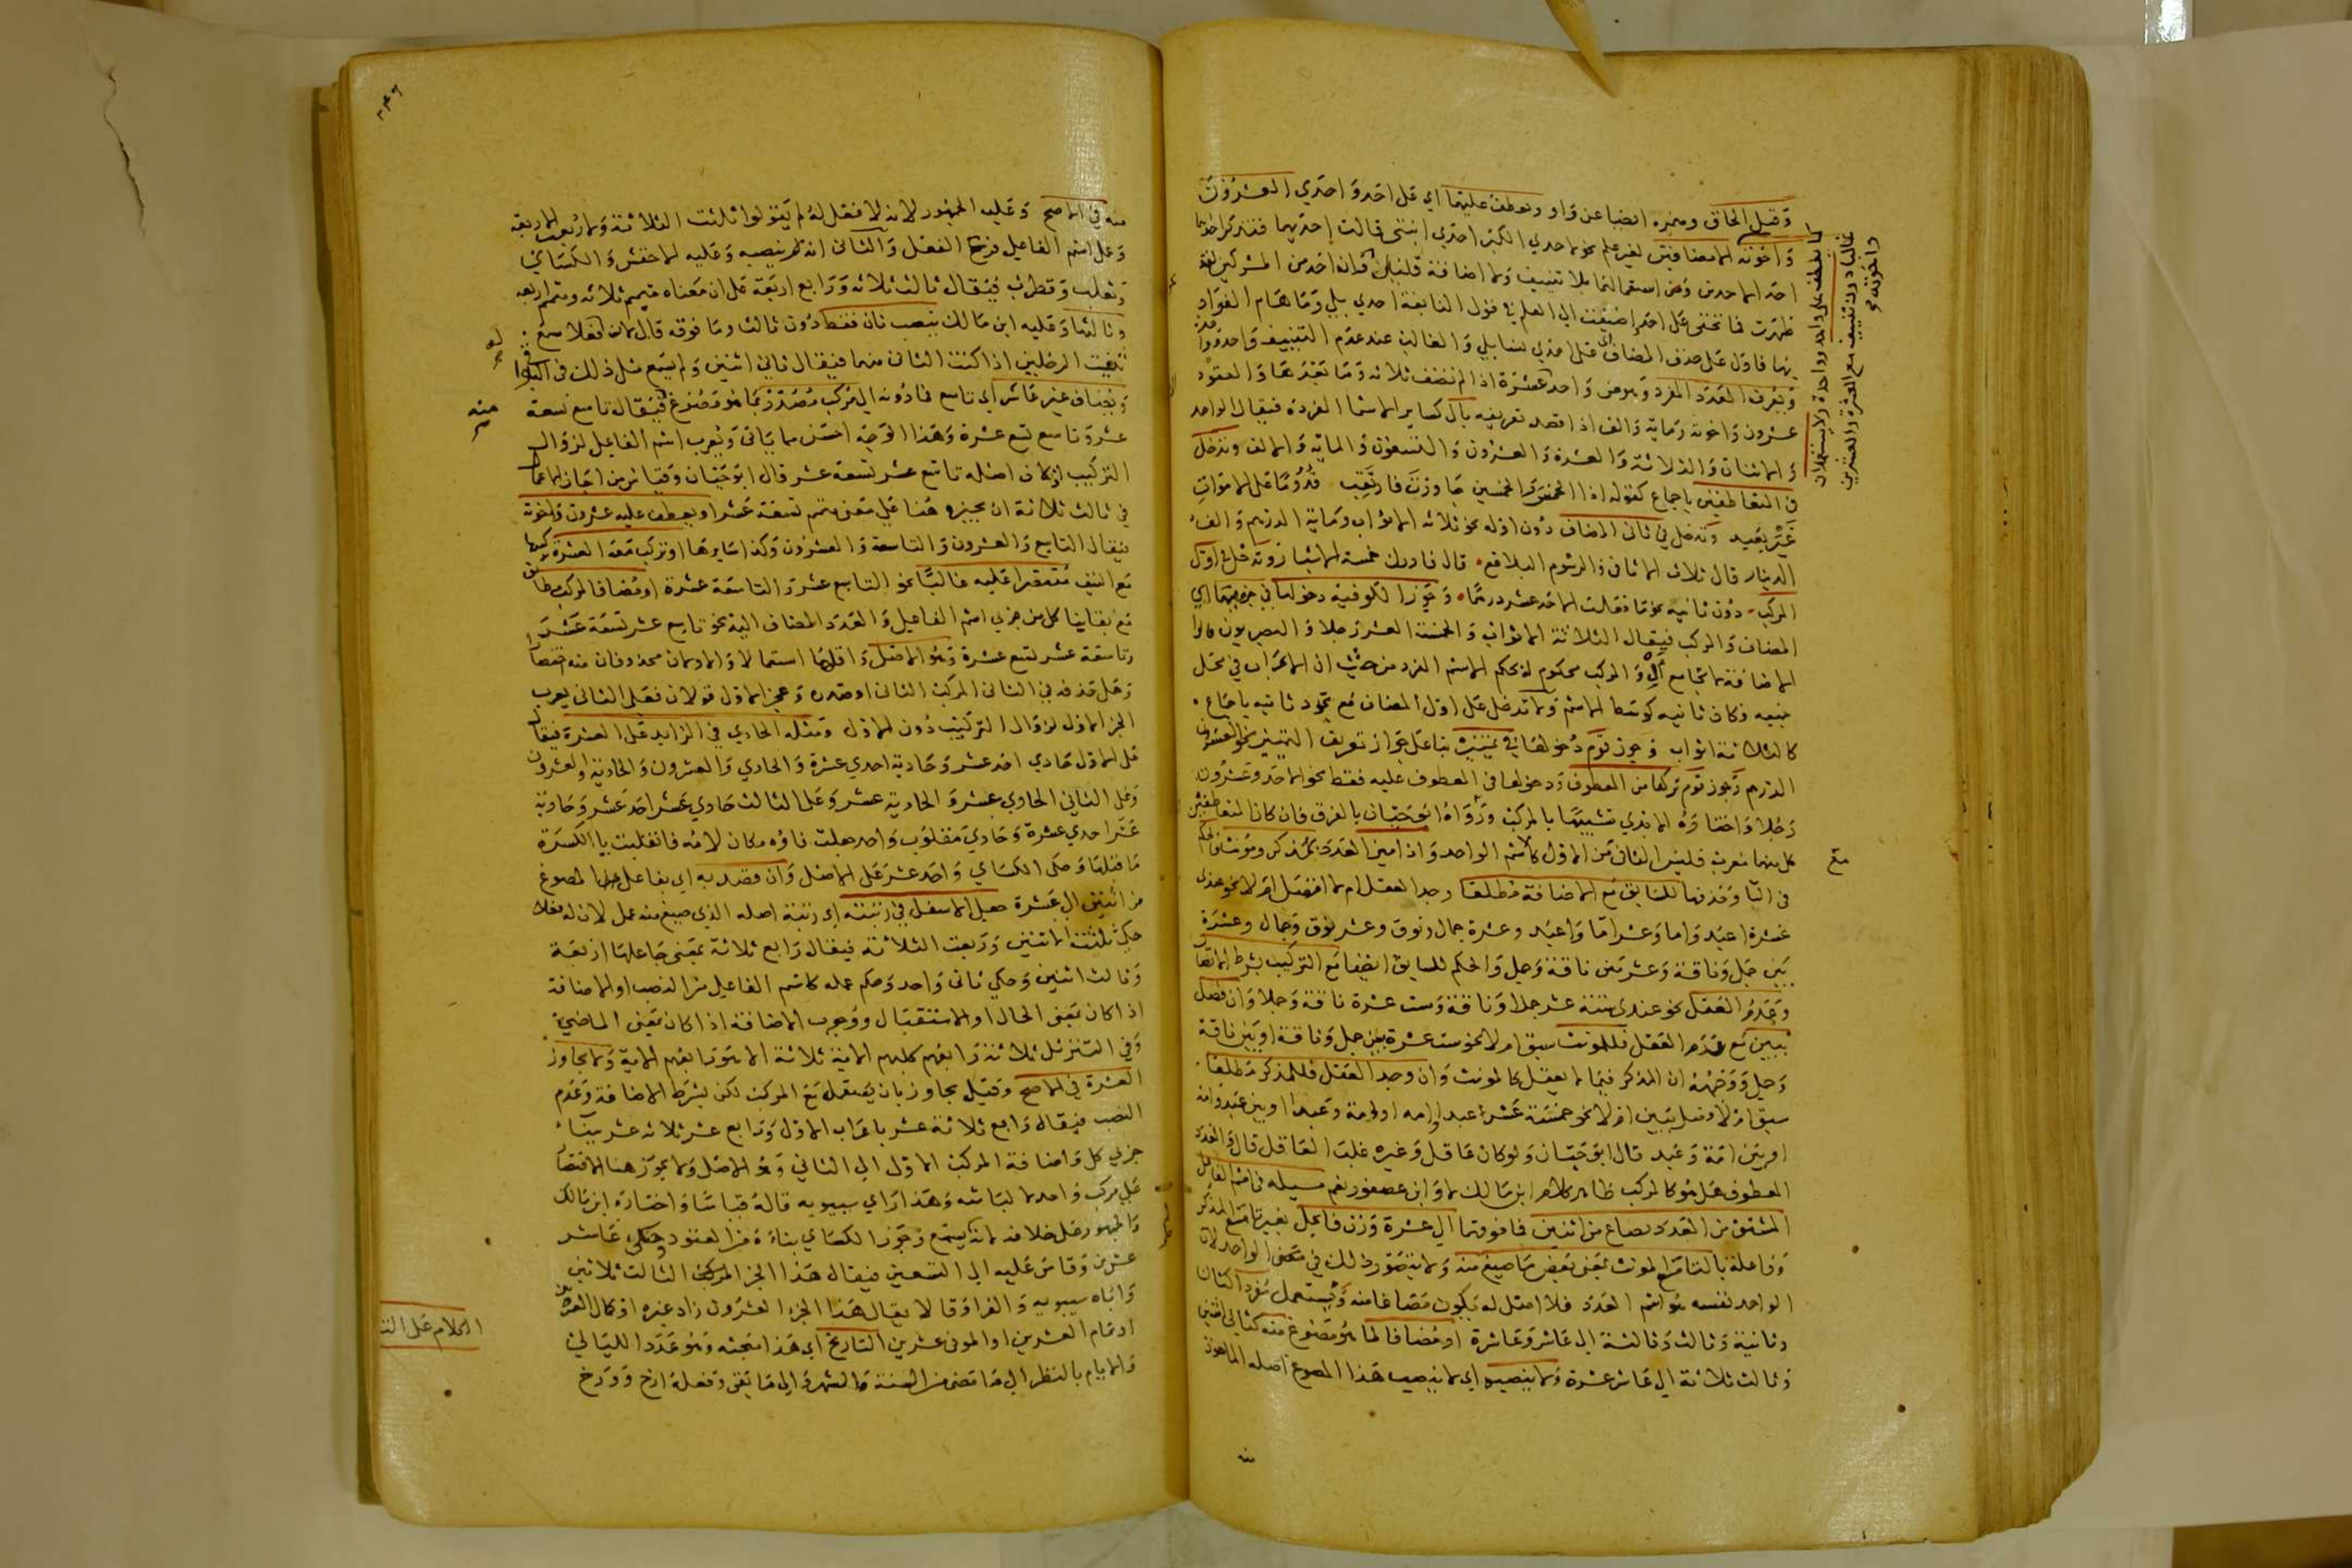 وقيل الحاق وميزه ايضا عن واو ويعطف عليهما اي على احد واحدي العشرون
واخوته لا مضافين لغير علم نحو لاحدي الكبر احدى ابنتي قالت احديهما فتذكر احداهما
احد الاحدين وقل استعمالهما بلا تنييف ولا اضافة قليلا كان احد من المشركين لقد
ظهرت فما تخفى على احد اضيفت الى العلم في قول النابغة احدي بلي وما هام الفواد
بها فاول على حذف المضاف قبل احدي لنسا بلي والغالب عند عدم التنييف واحد
ويعرف العدد المفرد وهو من واحد لعشرة اذا لم تضف ثلاثة وما بعدها والعقود
عشرون واخوته ومائة والف اذا قصد تعريفه بأل كساير الاسما المفردة فيقال الواحد
والاثنان والثلاثة والعشرة والعشرون والتسعون والماية والالف وتدخل
في المتعاطفين باجماع كقوله اذا الخمس والخمسين جاوزت فارتقب قدوما على الاموات
غير بعيد وتدخل في ثاني المضاف دون اوله نحو ثلاثة الاثواب وماية الدرهم والف
الدينار قال ثلاث الاثافي والرسوم البلاقع قال فادرك خمسة الاشبار وتدخل في اول
المركب دون ثانيه نحو ما فعلت الاحد عشر درهما وجوز الكوفية دخولها في جزءيهما اي
المضاف والمركب فيقال الثلاثة الاثواب والخمسة العشر رجلا والبصريون قالوا
الاضافة لا تجامع أل والمركب محكوم له بحكم الاسم المفرد من حيث ان الاعراب في محل
جميعه فكان ثانيه كوسط الاسم ولا تدخل على اول المضاف مع تجرد ثانيه باجماع
كالثلاثة اثواب وجوز قوم دخولها في تمييزه بنا على جواز تعريف التمييز نحو العشرون
الدرهم وجوز قوم تركها من المعطوف ودخولها في المعطوف عليه فقط نحو الاحد وعشرون
رجلا واختاره الابذي تشبيها بالمركب ورواه ابو حيان بالفرق فان كان المتعاطفين
كل منهما معرب فليس الثاني من الاول كاسم الواحد واذا ميز العدد بمذكر ومؤنث فالحكم
في التا وحذفها للسابق مع الاضافة مطلقا وجد العقل ام لا افضل ام لا نحو عندي
عشرة اعبد واما وعشر اما واعبد وعشرة جمال ونوق وعشر نوق وجمال وعشرة
بين جمل وناقة وعشر بين ناقة وجمل والحكم للسابق ايضا مع التركيب بشرط الاتصال
وعدم العقل نحو عندي ستة عشر جملا وناقة وست عشرة ناقة وجملا وان فصل
ببين مع عدم العقل فللمونث سبق ام لا نحو ست عشرة بين جمل وناقة او بين ناقة
وجمل ووجهه ان المذكر فيما لا يعقل كالمونث وان وجد العقل فللمذكر مطلقا
سبق ام لا فصل ببين ام لا نحو خمسة عشر عبدا وامه او امة وعبدا او بين عبد وامة
او بين امة وعبد قال ابو حيان ولو كان عاقل وغيره غلب العاقل قال والعدد
المعطوف هل هو كالمركب ظاهر كلام ابن مالك لا وابن عصفور نعم مسيلة في اسم الفاعل
المشتق من العدد يصاغ من اثنين فما فوقهما الى عشرة وزن فاعل بغير تا مع المذكر
وفاعلة بالتا مع المونث بمعنى بعض ما صيغ منه ولا يتصور ذلك في معنى الواحد لان
الواحد نفسه هو اسم العدد فلا اصل له يكون مصاغا منه ويستعمل مفردا كثان
وثانية وثالث وثالثة الى عاشر وعاشرة او مضافا لما هو مصوغ منه كثاني اثنين
وثالث ثلاثة الى عاشر عشرة ولا ينصبه اي لا ينصب هذا المصوغ اصله الماخوذ
منه
كما يعطف على واحد وواحدة ولا يستعملان
غالبا دون تنييف مع العشرة والعشرين
واخوته
منه في الاصح وعليه الجمهور لانه لا فعل له لم يقولوا ثلثت الثلاثة ولا ربعت الاربعة
وعمل اسم الفاعل فرع الفعل والثاني انه ينصبه وعليه الاخفش والكساي
وثعلب وقطرب فيقال ثالث ثلاثة ورابع اربعة على ان معناه متمم ثلاثة ومتمم اربعة
وثالثها وعليه ابن مالك ينصب ثان فقط دون ثالث وما فوقه قال لان له فعلا سمع
ثنيت الرجلين اذا كنت الثاني منهما فيقال ثاني اثنين ولم يسمع مثل ذلك في البواقي
ويضاف غير عاشر اي تاسع فما دونه الي مركب مصدر بما هو مصوغ منه فيقال تاسع تسعة
عشر وتاسع تسع عشرة وهذا الوجه احسن مما ياتي ويعرب اسم الفاعل لزوال
التركيب اذ كان اصله تاسع عشر تسعة عشر قال ابو حيان وقياس من اجاز الاعمال
في ثالث ثلاثة ان يجيزه هنا على معنى متمم تسعة عشر او يعطف عليه عشرون واخوته
فيقال التاسع والعشرون والتاسعة والعشرون وكذا سايرها او تركب معه العشرة
مع النيف مقتصرا عليه غالبا نحو التاسع عشر والتاسعة عشرة او مضافا لمركب مطابق
مع بقا بنا كل من جزي اسم الفاعل والعدد المضاف اليه نحو تاسع عشر تسعة عشر
وتاسعة عشر تسع عشرة وهو الاصل واقلها استعمالا والاولان محذوفان منه اختصارا
وهل حذفه في الثاني المركب الثاني او صدره وعجز الاول قولان فعلى الثاني يعرب
الجز الاول لزوال التركيب دون الاول ومثله الحادي في الزايد على العشرة فيقال
على الاول حادي احد عشر وحادية احدي عشرة والحادي والعشرون والحادية والعشرون
وعلى الثاني الحادي عشر والحادية عشر وعلى الثالث حادي عشر احد عشر وحادية
عشر احدي عشرة وحادي مقلوب واحد جعلت فاؤه مكان لامه فانقلبت يا لكسرة
ما قبلها وحكى الكساي واحد عشر على الاصل وان قصد به اي بفاعل المصوغ
من اثنين الى عشرة جعل الاسفل في رتبته اي رتبة اصله الذي صيغ منه عمل لان له فعلا
حكي ثلثت الاثنين وربعت الثلاثة فيقال رابع ثلاثة بمعنى جاعلها اربعة
وثالث اثنين وحكي ثاني واحد وحكم عمله كاسم الفاعل من النصب او الاضافة
اذا كان بمعنى الحال او الاستقبال ووجوب الاضافة اذا كان بمعنى الماضي
وفي التنزيل ثلاثة رابعهم كلبهم الاية ثلاثة الا هو رابعهم الاية ولا يجاوز
العشرة في الاصح وقيل يجاوز بان يستعمل مع المركب لكن بشرط الاضافة وعدم
النصب فيقال رابع ثلاثة عشر باعراب الاول ورابع عشر ثلاثة عشر ببناء
جزي كل واضافة المركب الاول الى الثاني وهو الاصل ولا يجوز هنا الاقتصار
على مركب واحد لالباسه وهذا راي سيبويه قاله قياسا واختاره ابن مالك
والجمهور على خلافه لانه لم يسمع وجوز الكساي بناءه من العقود وحكى عاشر
عشرين وقاس عليه الى التسعين فيقال هذا الجز الثالث ثلاثين
واباه سيبويه والفرا وقالا يقال هذا الجزء العشرون زاد غيره او كمال العشرين
او تمام العشرين او الموفى عشرين التاريخ اي هذا مبحثه وهو عدد الليالي
والايام بالنظر الى ما مضى من السنة والشهر والى ما بقي وفعله ارخ وورخ
منه
الكلام على